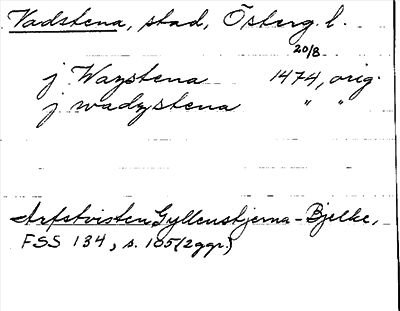 Vadstena, stad, Österg. l.
20/8
j Wazstena 1474, orig.
j wadzstena " "
Arfstvisten Gyllenstjerna-Bjelke,
FSS 134, s. 105 (2ggr.)